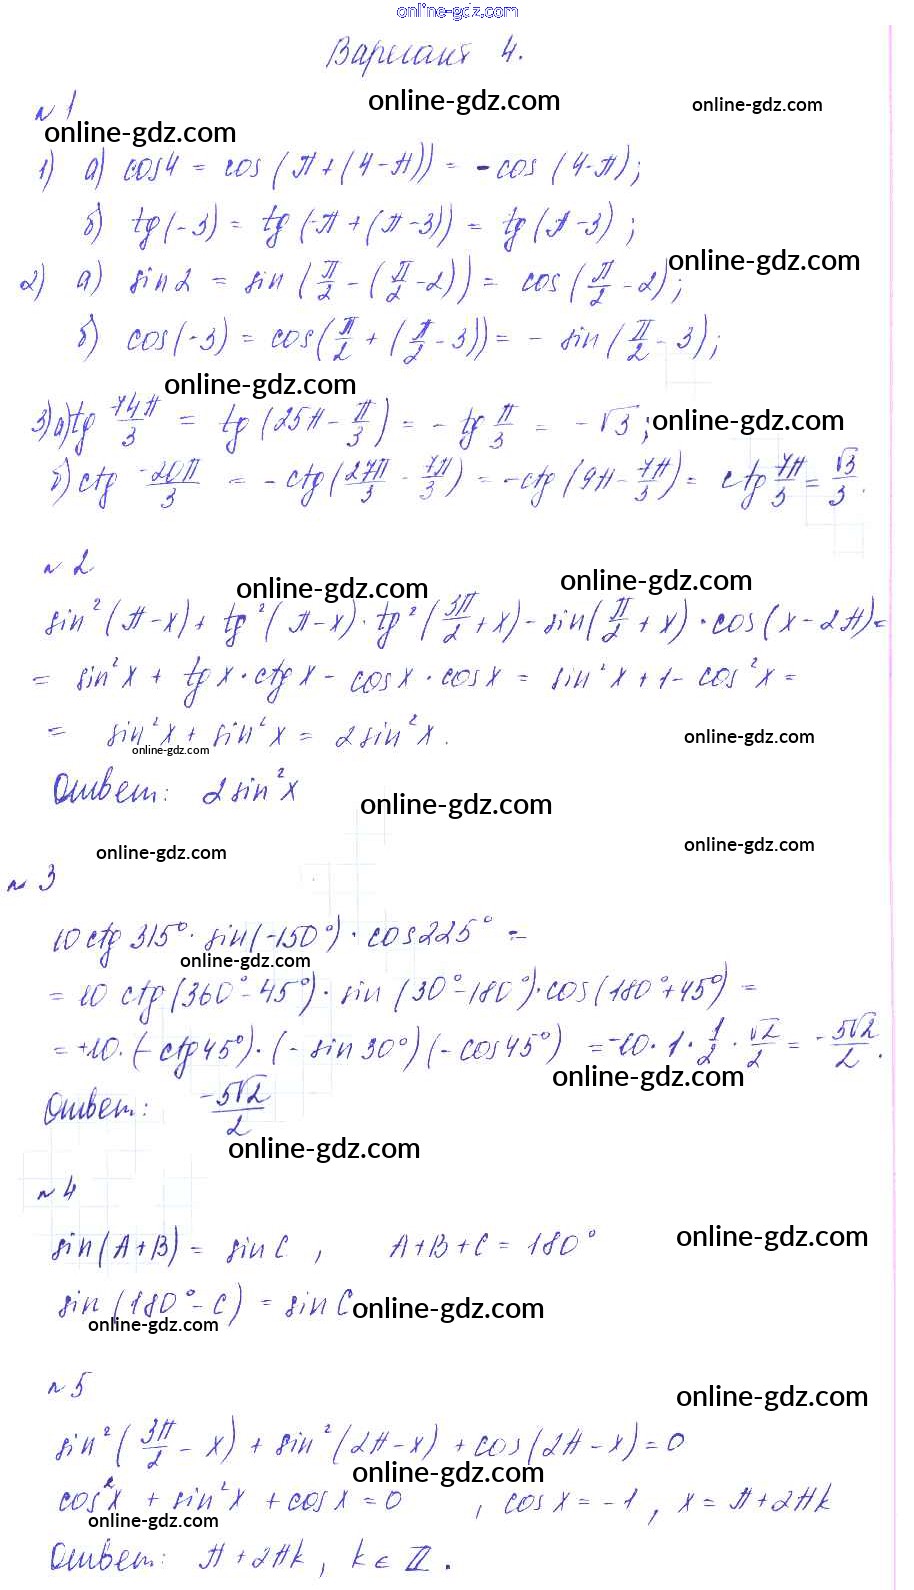 online-gdz.com
Вариант 4.
online-gdz.com online-gdz.com
№1
online-gdz.com
1) а) cos4 = cos (π + (4 - π)) = - cos (4-π);
б) tg(-3) = tg(-π + (π-3)) = tg(π-3);
online-gdz.com
2) а) sin2 = sin (π/2 - (π/2 - 2)) = cos(π/2 - 2);
б) cos(-3) = cos(π/2 + (π/2 - 3)) = - sin(π/2 - 3);
online-gdz.com
3) а) tg 74π/3 = tg(25π - π/3) = - tg π/3 = - √3;
online-gdz.com
б) ctg -20π/3 = - ctg(27π/3 - 7π/3) = -ctg(9π - 7π/3) = ctg 7π/3 = √3/3.
№2
online-gdz.com online-gdz.com
sin²(π-x) + tg²(π-x) · tg²(3π/2 + x) - sin(π/2 + x) · cos(x - 2π) =
= sin²x + tgx · ctgx - cosx · cosx = sin²x + 1 - cos²x =
= sin²x + sin²x = 2sin²x.
online-gdz.com online-gdz.com
Ответ: 2sin²x
online-gdz.com
online-gdz.com online-gdz.com
№3
10ctg 315° · sin(-150°) · cos225° =
online-gdz.com
= 10 ctg(360° - 45°) · sin(30° - 180°) · cos(180° + 45°) =
= +10 · (- ctg45°) · (- sin30°)(- cos45°) = -10 · 1 · 1/2 · √2/2 = - 5√2/2.
online-gdz.com
Ответ: -5√2/2
online-gdz.com
№4
online-gdz.com
sin(A+B) = sinC, A+B+C = 180°
sin(180° - C) = sinC
online-gdz.com
online-gdz.com
№5
online-gdz.com
sin²(3π/2 - x) + sin²(2π - x) + cos(2π - x) = 0
online-gdz.com
cos²x + sin²x + cosx = 0, cosx = -1, x = π + 2πk
online-gdz.com
Ответ: π + 2πk, k ∈ Z.